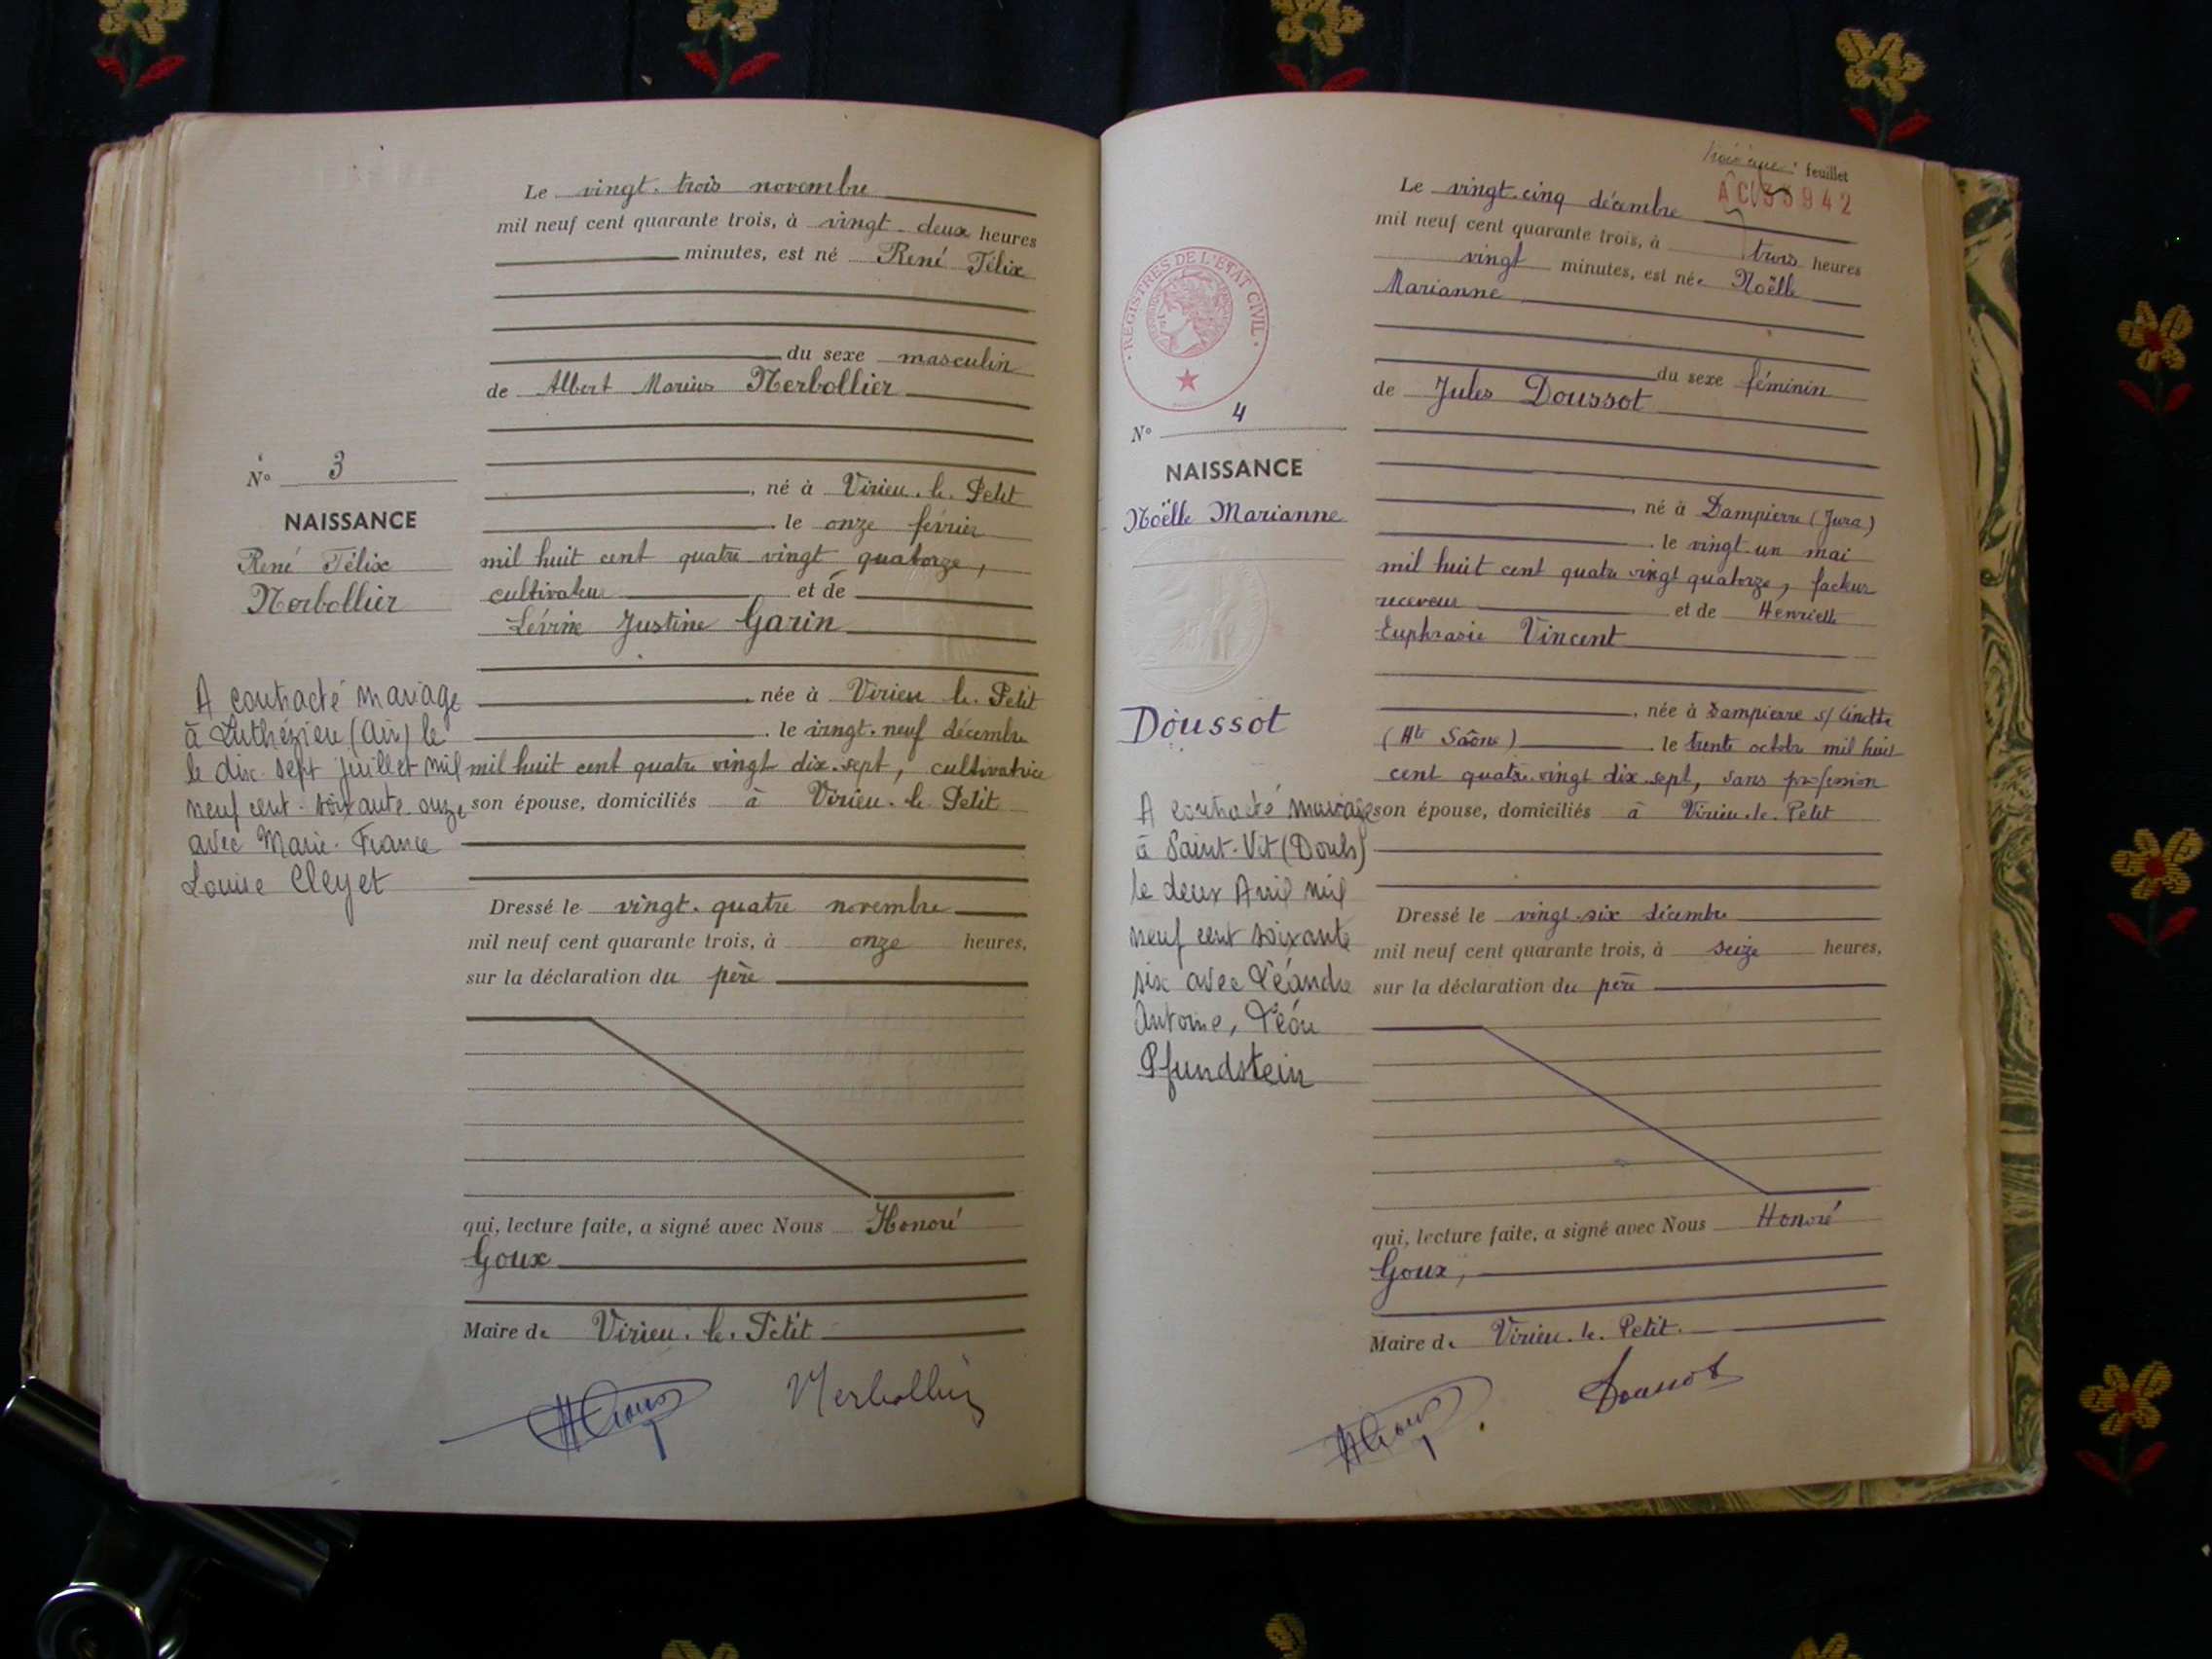 N° 3
NAISSANCE
René Félix
Nerbollier
A contracté mariage
à Luthézieu (Ain) le
le dix-sept juillet mil
neuf cent soixante onze
avec Marie-France
Louise Cleyet
Le vingt-trois novembre
mil neuf cent quarante trois, à vingt-deux heures
minutes, est né René Félix
du sexe masculin
de Albert Marius Nerbollier
, né à Virieu-le-Petit
, le onze février
mil huit cent quatre vingt quatorze,
cultivateur et de
Lévine Justine Garin
, née à Virieu-le-Petit
, le vingt-neuf décembre
mil huit cent quatre vingt dix-sept, cultivatrice
son épouse, domiciliés à Virieu-le-Petit
Dressé le vingt-quatre novembre
mil neuf cent quarante trois, à onze heures,
sur la déclaration du père
qui, lecture faite, a signé avec Nous Honoré
Goux
Maire de Virieu-le-Petit
HGoux Nerbollier
troisième feuillet
AC 35942
REGISTRES DE L'ÉTAT CIVIL
N° 4
NAISSANCE
Noëlle Marianne
Doussot
A contracté mariage
à Saint-Vit (Doubs)
le deux Avril mil
neuf cent soixante
six avec Léandre
Antoine, Léon
Pfundstein
Le vingt-cinq décembre
mil neuf cent quarante trois, à trois heures
vingt minutes, est née Noëlle
Marianne
du sexe féminin
de Jules Doussot
, né à Dampierre (Jura)
, le vingt-un mai
mil huit cent quatre vingt quatorze, facteur
receveur et de Henriette
Euphrasie Vincent
, née à Dampierre s/ Linotte
(Hte Saône) , le trente octobre mil huit
cent quatre-vingt dix-sept, sans profession
son épouse, domiciliés à Virieu-le-Petit
Dressé le vingt-six décembre
mil neuf cent quarante trois, à seize heures,
sur la déclaration du père
qui, lecture faite, a signé avec Nous Honoré
Goux,
Maire de Virieu-le-Petit.
HGoux Doussot